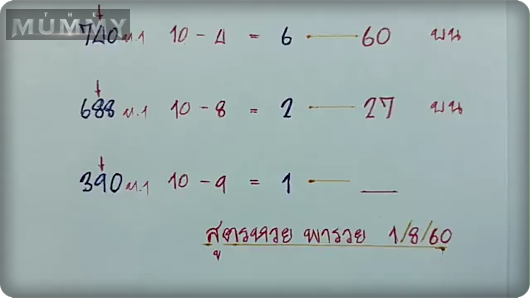 THE
MUMMY
740 ม.1 10 - 4 = 6 — 60 บน
688 ม.1 10 - 8 = 2 — 27 บน
390 ม.1 10 - 9 = 1 — __
สูตรหวย พารวย 1/8/60